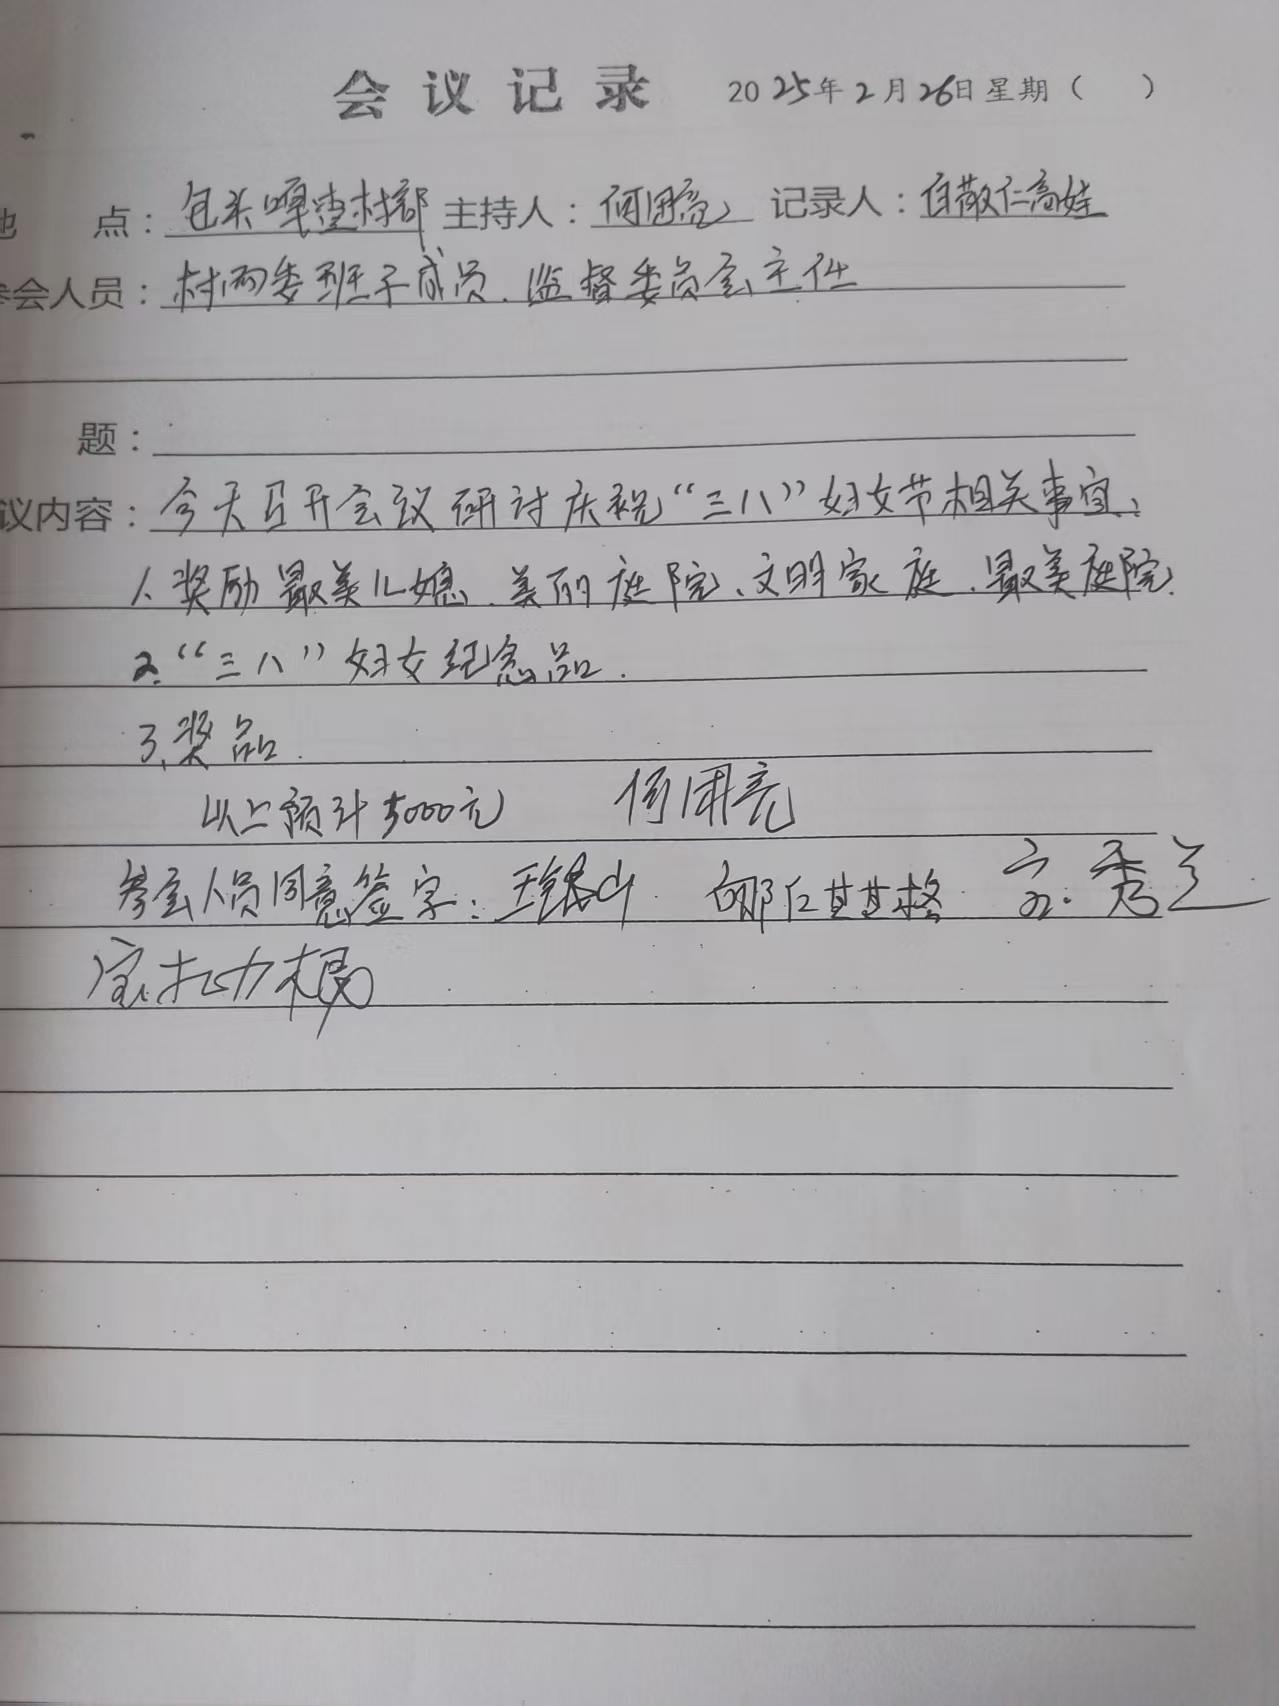 会议记录 2025年2月26日星期( )
点：包头嘎查村部 主持人：何国亮 记录人：白散仁高娃
会人员：村两委班子成员、监督委员会主任
题：
议内容：今天召开会议研讨庆祝“三八”妇女节相关事宜：
1、奖励最美儿媳、美丽庭院、文明家庭、最美庭院.
2、“三八”妇女纪念品.
3、奖品.
以上预计5000元 何国亮
参会人员同意签字：王银山 哪仁其其格 秀兰
宝扎力根